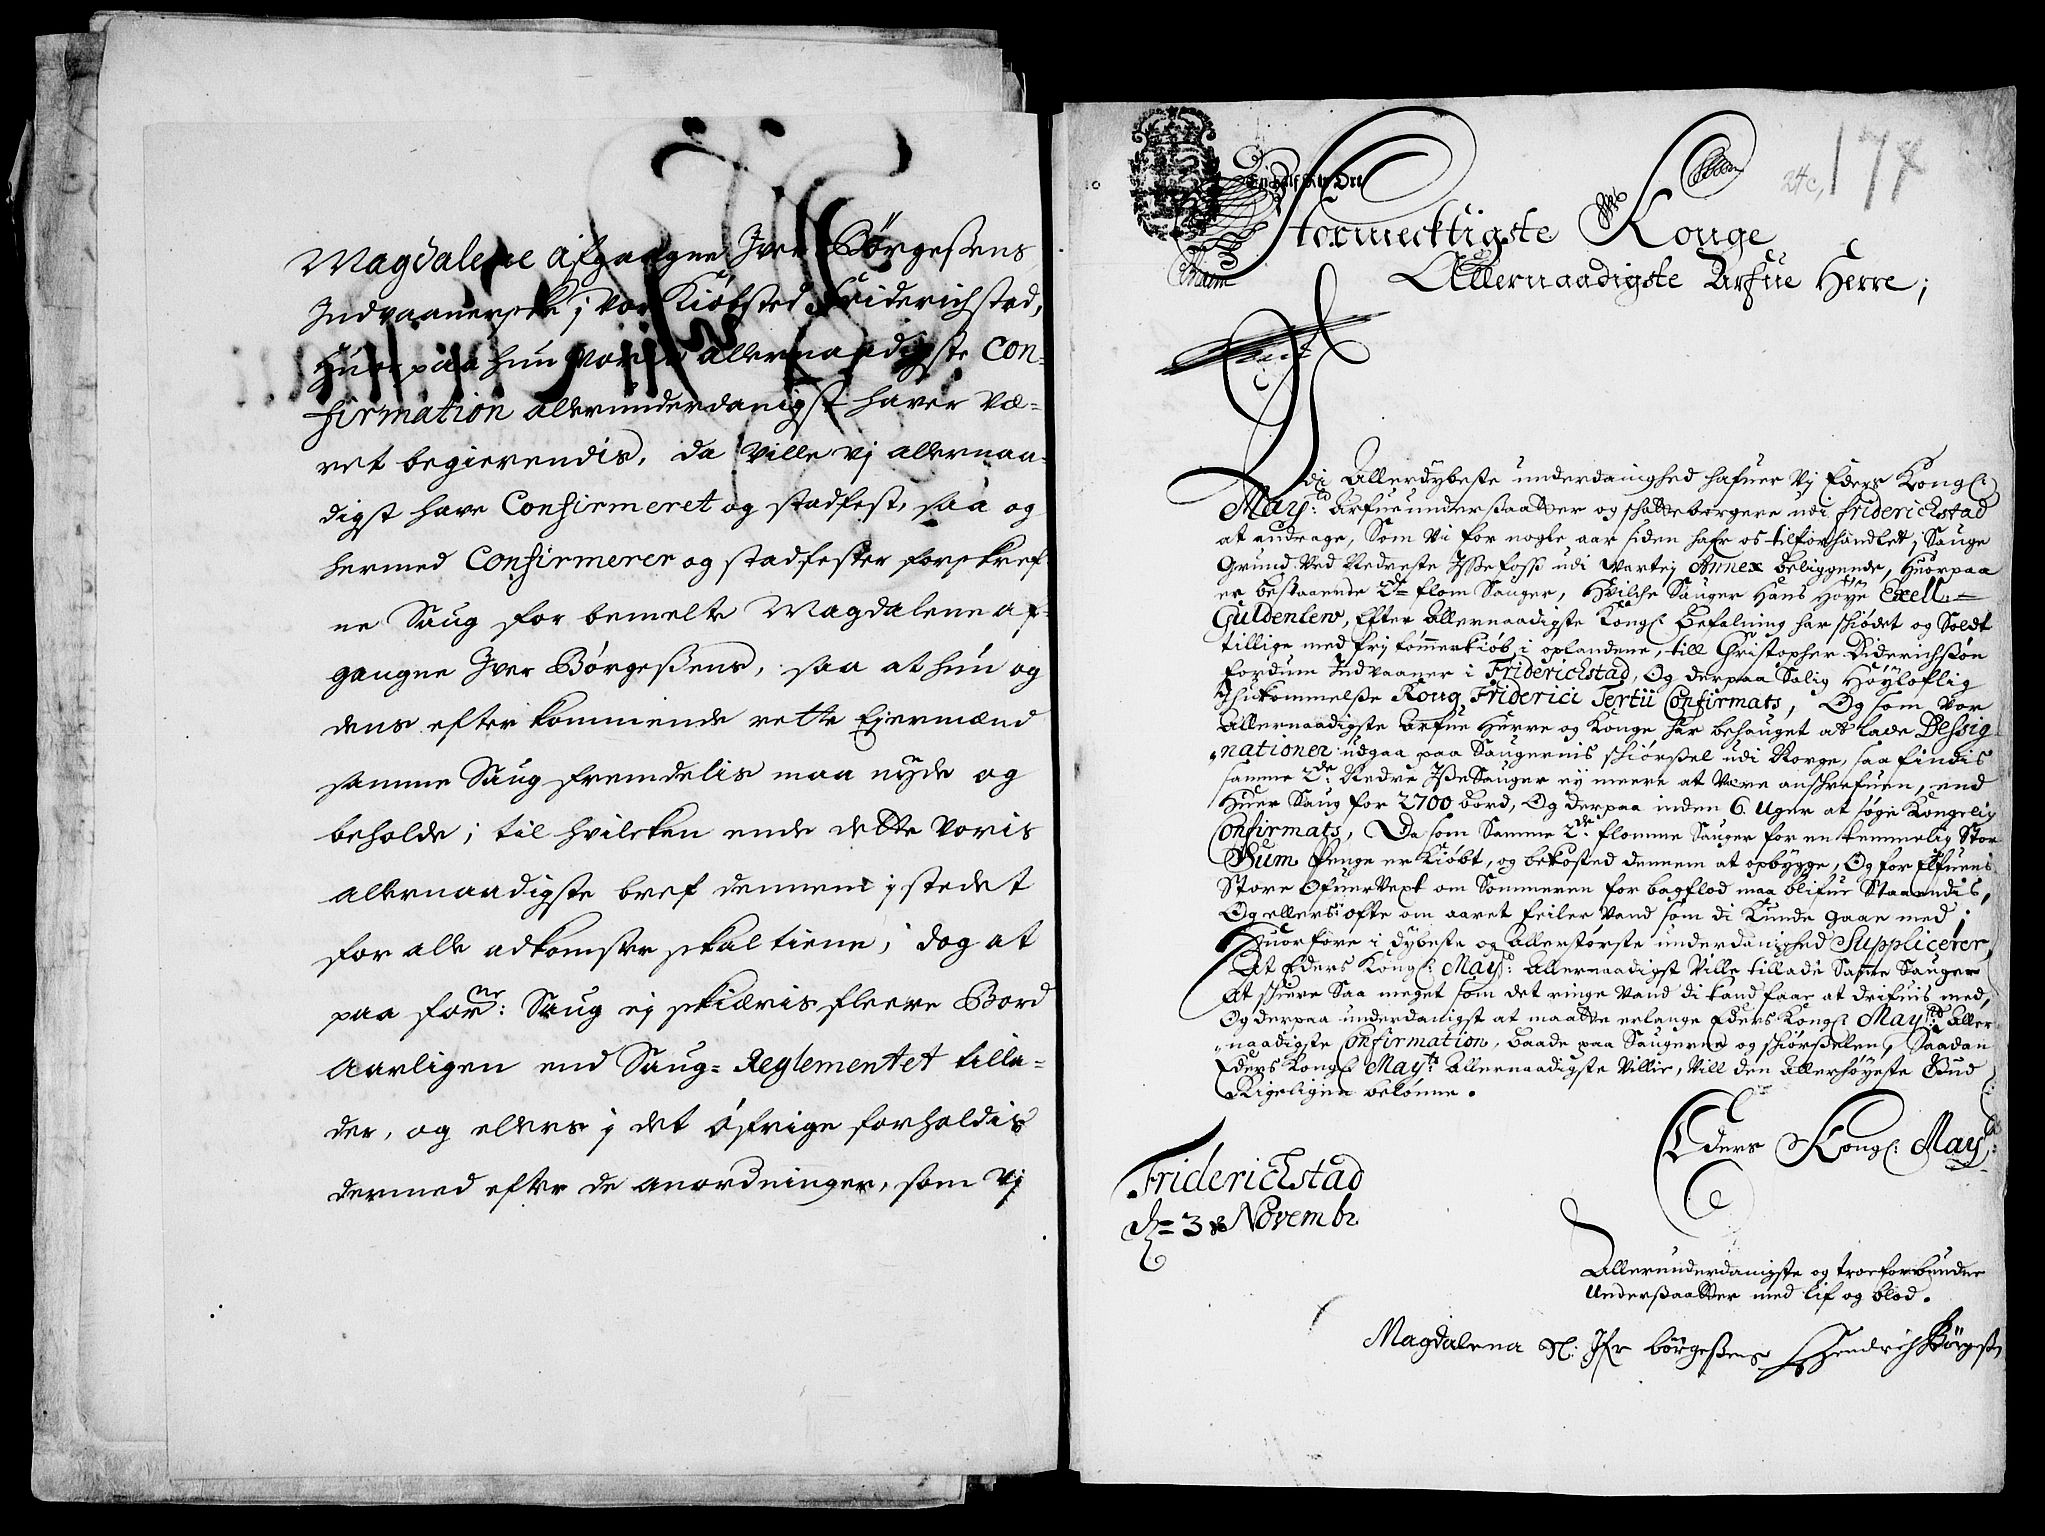 Magdalene afgangne Iver Børgeßens
Indvaanerske i Vor Kiøbsted Friderichstad,
Huor paa hun Vores allernaadigste Con-
firmation allerunderdanigst haver væ-
ret begierendis, da ville vj allernaa-
digst have Confirmeret og stadfest, saa og
hermed Confirmerer og stadfester foreskref
ne Saug for bemelte Magdalene af-
gangne Iver Børgeßens, saa at hun og
dens efterkommende rette Eiermænd
samme Saug fremdelis maa nyde og
beholde; til hvilcken ende dette Voris
allernaadigste bref dennem i stedet
for alle adkomster skal tiene, dog at
paa forne: Saug ej skiæris fleere Bord
Aarligen end Saug-Reglementet tilla-
der, og ellers i det øfrige forholdis
dermed efter de anordninger, som vj
24c, 174
En half Rix Ort
Stormecktigste Konge
Allernaadigste Arfue Herre;
Udj Allerdybeste underdanighed hafuer Vj Eders Kongl:
Mayts: Arfue underßaatter og skatteborgere udi Friderichstad
at andrage, Som Vi for nogle aar siden hafr os tilforhandlet, Sauge
Grund Ved Nedreste Iße foss udi Vartej Annex bebiggende, Huorpaa
er bestaaende 2de flom Sauger, Hvilche Sauger Hans Høye Exell.
Guldenlew, Efter Allernaadigste Kongl Befalning har skiødet og Soldt
tillige med frj tømmerkiøb i oplandene, till Christopher Diderichsøn
fordum Indvaaner i Friderichstad, Og derpaa Salig Høyloflig
Ihukommelße Kong Friderici Tertii Confirmats, Og som Vor
Allernaadigste Arfue Herre og Konge har behauget at lade Dessig
nationer udgaa paa Saugernis skiørßel udi Norge, saa findis
samme 2de Nedre Iße Sauger ej meere at Være anskrefuen, end
Huer Saug for 2700 bord, Og derpaa inden 6 Uger at søge Kongelig
Confirmats, Da som Samme 2de flomme Sauger for en temmelig Stor
Sum Penge er Kiøbt, og bekosted dennem at opbygge, Og for Elfuens
Store Ofuervext om Sommeren for bagflod maa blifue Staaendis,
Og ellers ofte om aaret feiler Vand som di Kunde gaae med;
Huorfore i dybeste og Allerstørste underdanighed Supplicerer,
At Eders Kongl: Mayts: Allernaadigst Ville tillade Samme Sauger
At skiere Saa meget som det ringe Vand di kand faae at drifuis med,
Og derpaa underdanigst at maatte erlange Eders Kongl: Mayts: Aller
naadigste Confirmation, baade paa Saugerne og skiørßelen, Saadan
Eders Kongl Mayts Allernaadigste Villie, Vill den Allerhøyeste Gud
Rigeligen belønne.
Eders Kongl: Mayts:
Friderichstad
dn 3 Novembr
Allerunderdanigste og troe forbundne
Underßaatter med lif og blod.
Magdalena Sl: Ifr børgeßens Hendrich Børgeß